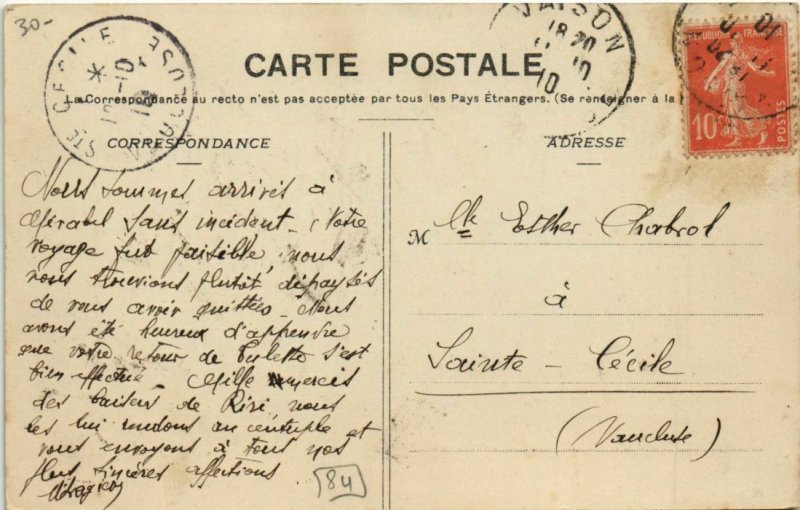 30-
CARTE POSTALE
La Correspondance au recto n'est pas acceptée par tous les Pays Étrangers. (Se renseigner à la
CORRESPONDANCE
Nous sommes arrivés à
Mirabel sans incident. Notre
voyage fut paisible, nous
nous trouvions plutôt dépaysés
de vous avoir quittées. Nous
avons été heureux d'apprendre
que votre retour de Tulette s'est
bien effectué. Mille mercis
des baisers de Riri, nous
les lui rendons au centuple et
vous envoyons à tous nos
plus sincères affections
84
ADRESSE
M lle Esther Chabrol
à
Sainte - Cécile
(Vaucluse)
VAISON
18 20
10
STE CÉCILE
VAUCLUSE
REPUBLIQUE FRANÇAISE
10
POSTES